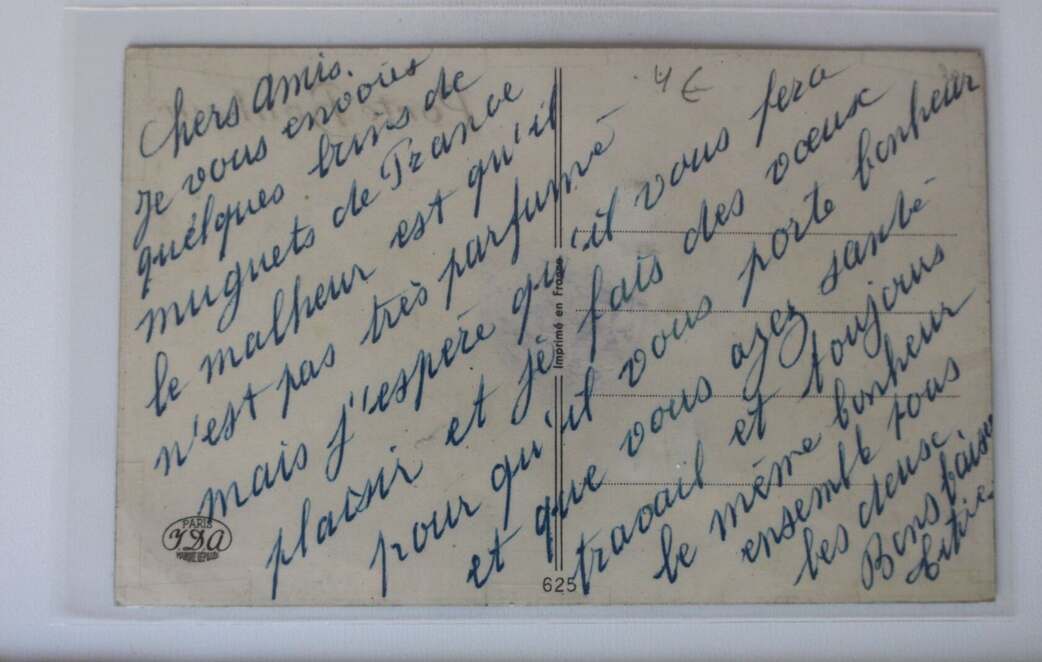 4 €
Chers amis.
Je vous envoies
quélques brins de
muguets de France
le malheur est qu'il
n'est pas très parfumé
mais j'espére qu'il vous fera
plaisir et jé fais des voeux
pour qu'il vous porte bonheur
et que vous ayez santé
travail et toujours
le même bonheur
ensemble tous
les deux
Bons baisers
Imprimé en France
PARIS
IDA
625